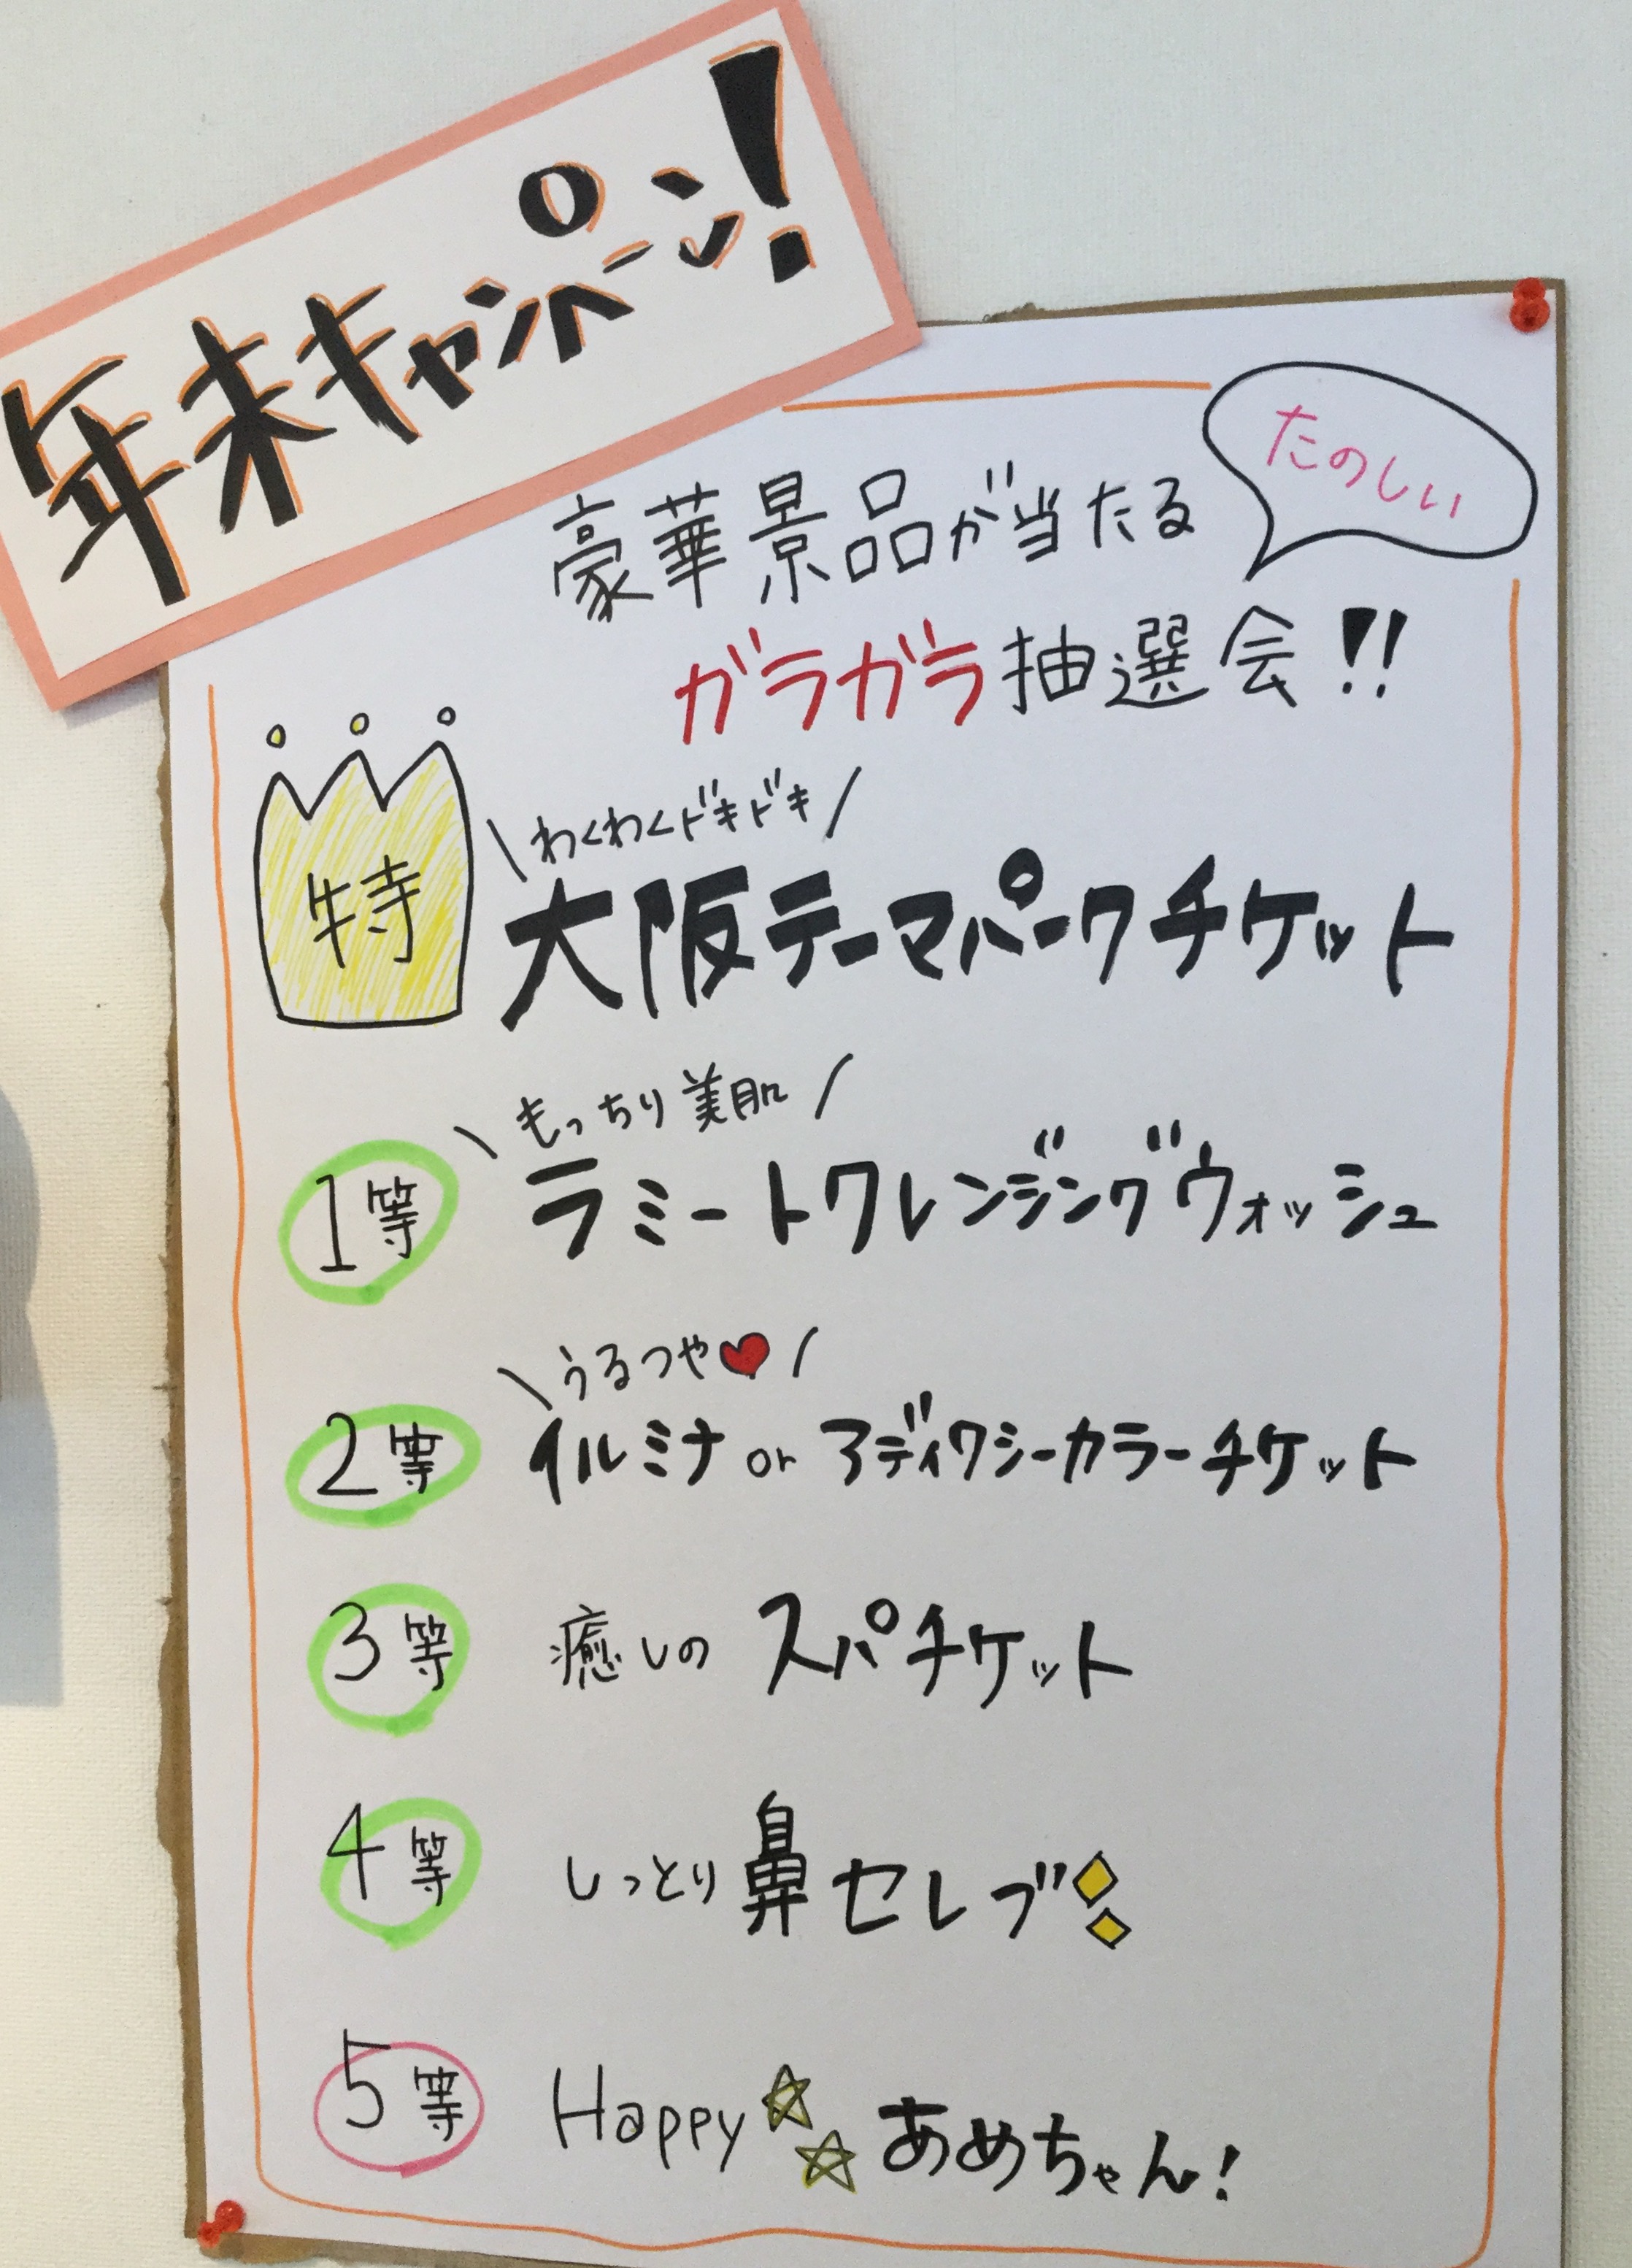 年末キャンペーン!
たのしい
豪華景品が当たる
ガラガラ抽選会!!
\わくわくドキドキ/
特 大阪テーマパークチケット
\もっちり美肌/
1等 ラミートクレンジングウォッシュ
\うるつや♥/
2等 イルミナ or アディクシーカラーチケット
3等 癒しの スパチケット
4等 しっとり鼻セレブ
5等 Happy☆☆あめちゃん!